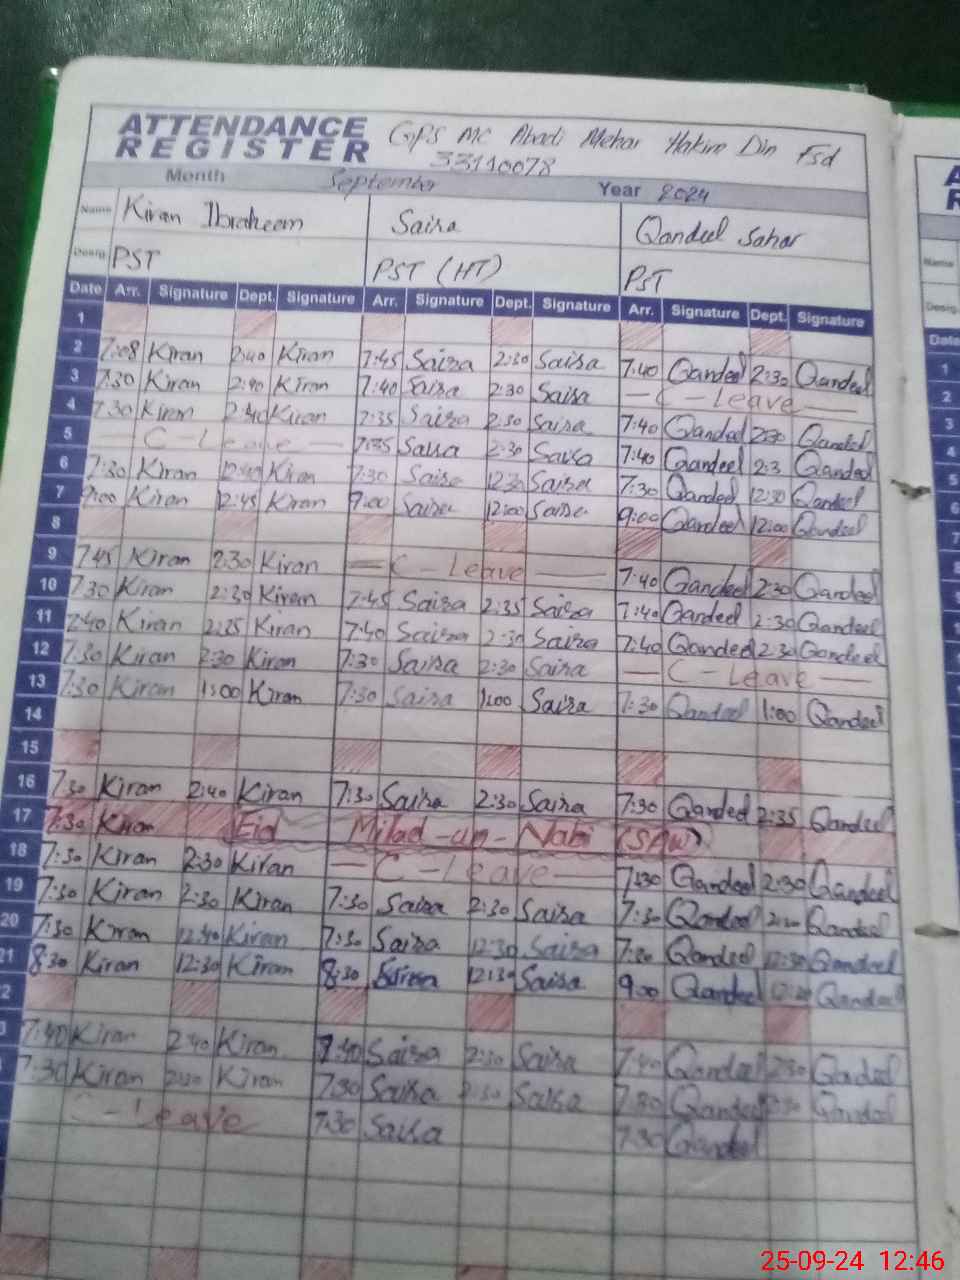 ATTENDANCE REGISTER GPS MC Abadi Mehar Hakim Din Fsd
33110078
Month September Year 2024
Name Kiran Ibraheem Saira Qandeel Sahar
Desig. PST PST (HT) PST
Date Arr. Signature Dept. Signature Arr. Signature Dept. Signature Arr. Signature Dept. Signature
1
2 7:08 Kiran 2:40 Kiran 7:45 Saira 2:30 Saira 7:40 Qandeel 2:30 Qandeel
3 7:30 Kiran 2:40 Kiran 7:40 Saira 2:30 Saira — C - Leave —
4 7:30 Kiran 2:40 Kiran 7:35 Saira 2:30 Saira 7:40 Qandeel 2:30 Qandeel
5 — C - Leave — 7:35 Saira 2:30 Saira 7:40 Qandeel 2:3 Qandeel
6 7:30 Kiran 12:40 Kiran 7:30 Saira 12:30 Saira 7:30 Qandeel 12:30 Qandeel
7 9:00 Kiran 12:45 Kiran 9:00 Saira 12:00 Saira 9:00 Qandeel 12:00 Qandeel
8
9 7:45 Kiran 2:30 Kiran — C - Leave — 7:40 Qandeel 2:30 Qandeel
10 7:30 Kiran 2:30 Kiran 7:45 Saira 2:35 Saira 7:40 Qandeel 2:30 Qandeel
11 7:40 Kiran 2:35 Kiran 7:40 Saira 2:30 Saira 7:40 Qandeel 2:30 Qandeel
12 7:30 Kiran 2:30 Kiran 7:30 Saira 2:30 Saira — C - Leave —
13 7:30 Kiran 1:00 Kiran 7:30 Saira 1:00 Saira 7:30 Qandeel 1:00 Qandeel
14
15
16 7:30 Kiran 2:40 Kiran 7:30 Saira 2:30 Saira 7:30 Qandeel 2:35 Qandeel
17 7:30 Kiran Eid Milad-un-Nabi (SAW)
18 7:30 Kiran 2:30 Kiran — C - Leave — 7:30 Qandeel 2:30 Qandeel
19 7:30 Kiran 2:30 Kiran 7:30 Saira 2:30 Saira 7:30 Qandeel Qandeel
20 7:30 Kiran 12:40 Kiran 7:30 Saira 12:30 Saira Qandeel 12:30 Qandeel
21 8:30 Kiran 12:30 Kiran 8:30 12:30 Saira 9:00 Qandeel Qandeel
2
3 7:40 Kiran 2:40 Kiran 7:40 Saira 2:30 Saira 7:40 Qandeel 2:30 Qandeel
7:30 Kiran Kiran 7:30 Saira 2:30 Saira Qandeel Qandeel
C - Leave 7:30 Saira 7:30 Qandeel
A
R
Name
Desig.
Date
1
2
3
4
5
6
7
25-09-24 12:46